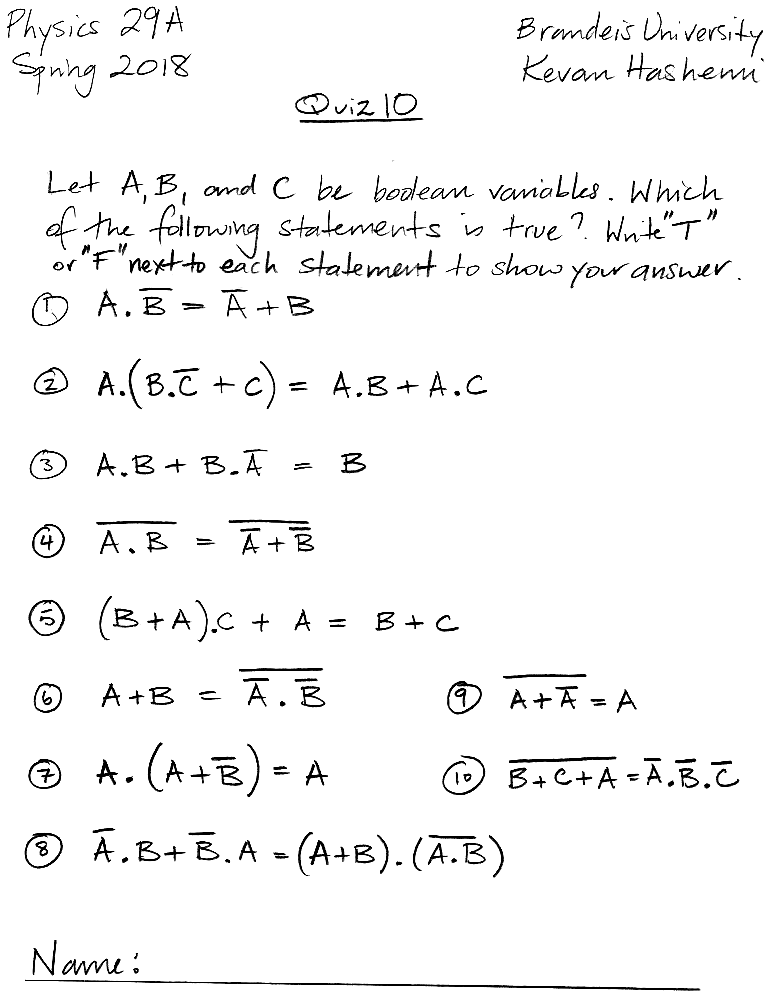 Physics 29A
Brandeis University
Spring 2018
Kevan Hashemi
Quiz 10
Let A, B, and C be boolean variables. Which
of the following statements is true? Write "T"
or "F" next to each statement to show your answer.
① A.B̅ = A̅ + B
② A.(B.C̅ + C) = A.B + A.C
③ A.B + B.A̅ = B
④ A̅.̅B̅ = A̅̅ ̅+̅ ̅B̅̅
⑤ (B + A).C + A = B + C
⑥ A + B = A̅̅ ̅.̅ ̅B̅̅
⑨ A̅ ̅+̅ ̅A̅̅ = A
⑦ A.(A + B̅) = A
⑩ B̅ ̅+̅ ̅C̅ ̅+̅ ̅A̅ = A̅.B̅.C̅
⑧ A̅.B + B̅.A = (A+B).(A̅.̅B̅)
Name: